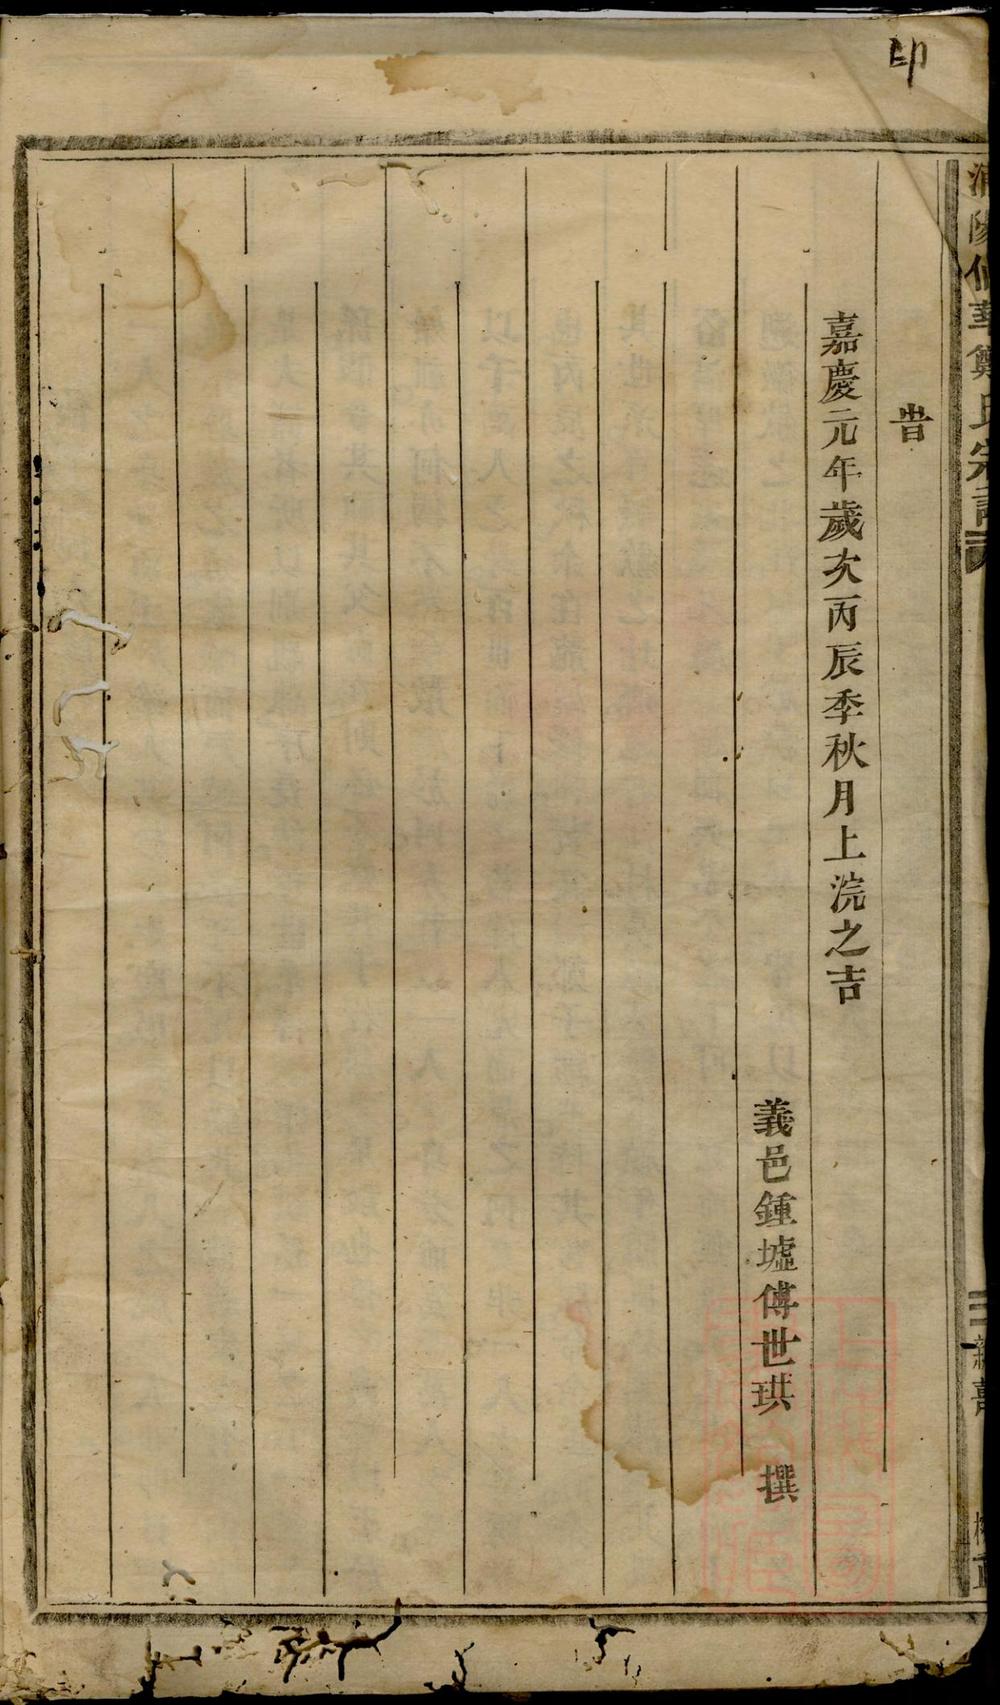 印
旹
嘉慶元年歲次丙辰季秋月上浣之吉
義邑鍾墟傅世珙 撰
華鄭氏宗譜